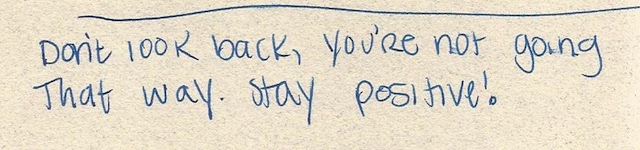 Don't look back, you're not going
That way. Stay positive!